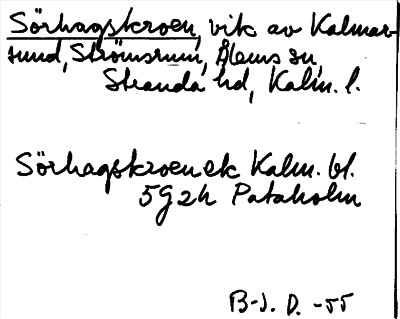 Sörhagskroen, vik av Kalmar-
sund, Strömsrum, Ålems sn,
Stranda hd, Kalm. l.
Sörhagskroen ek Kalm. bl.
5G2h Pataholm
B-J. D. -55